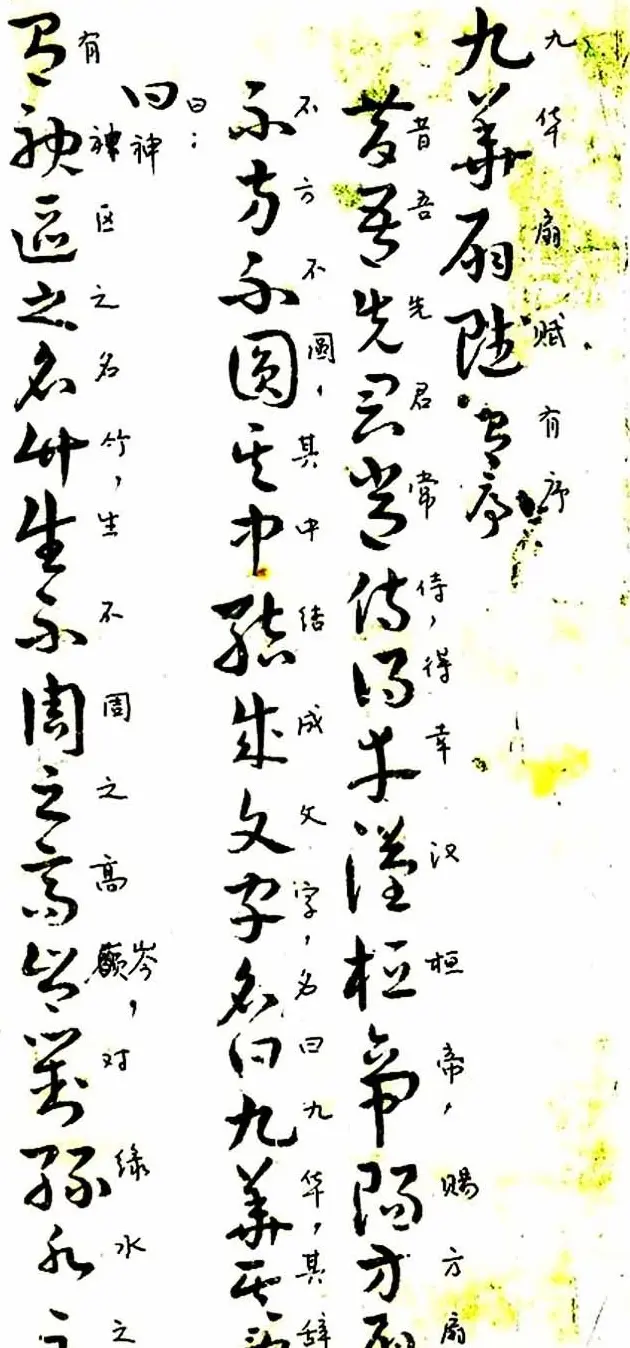 九华扇赋。有序
九華扇賦有序
昔吾先君常侍，得幸汉桓帝，赐方扇
昔吾先君常侍得幸漢桓帝賜方扇
不方不圆，其中结成文字，名曰九华，其辞
不方不圓其中結成文字名曰九華其辭
曰：
曰
神
有神区之名竹，生不周之高岑，对绿水之
有神區之名竹生不周之高岑對綠水之